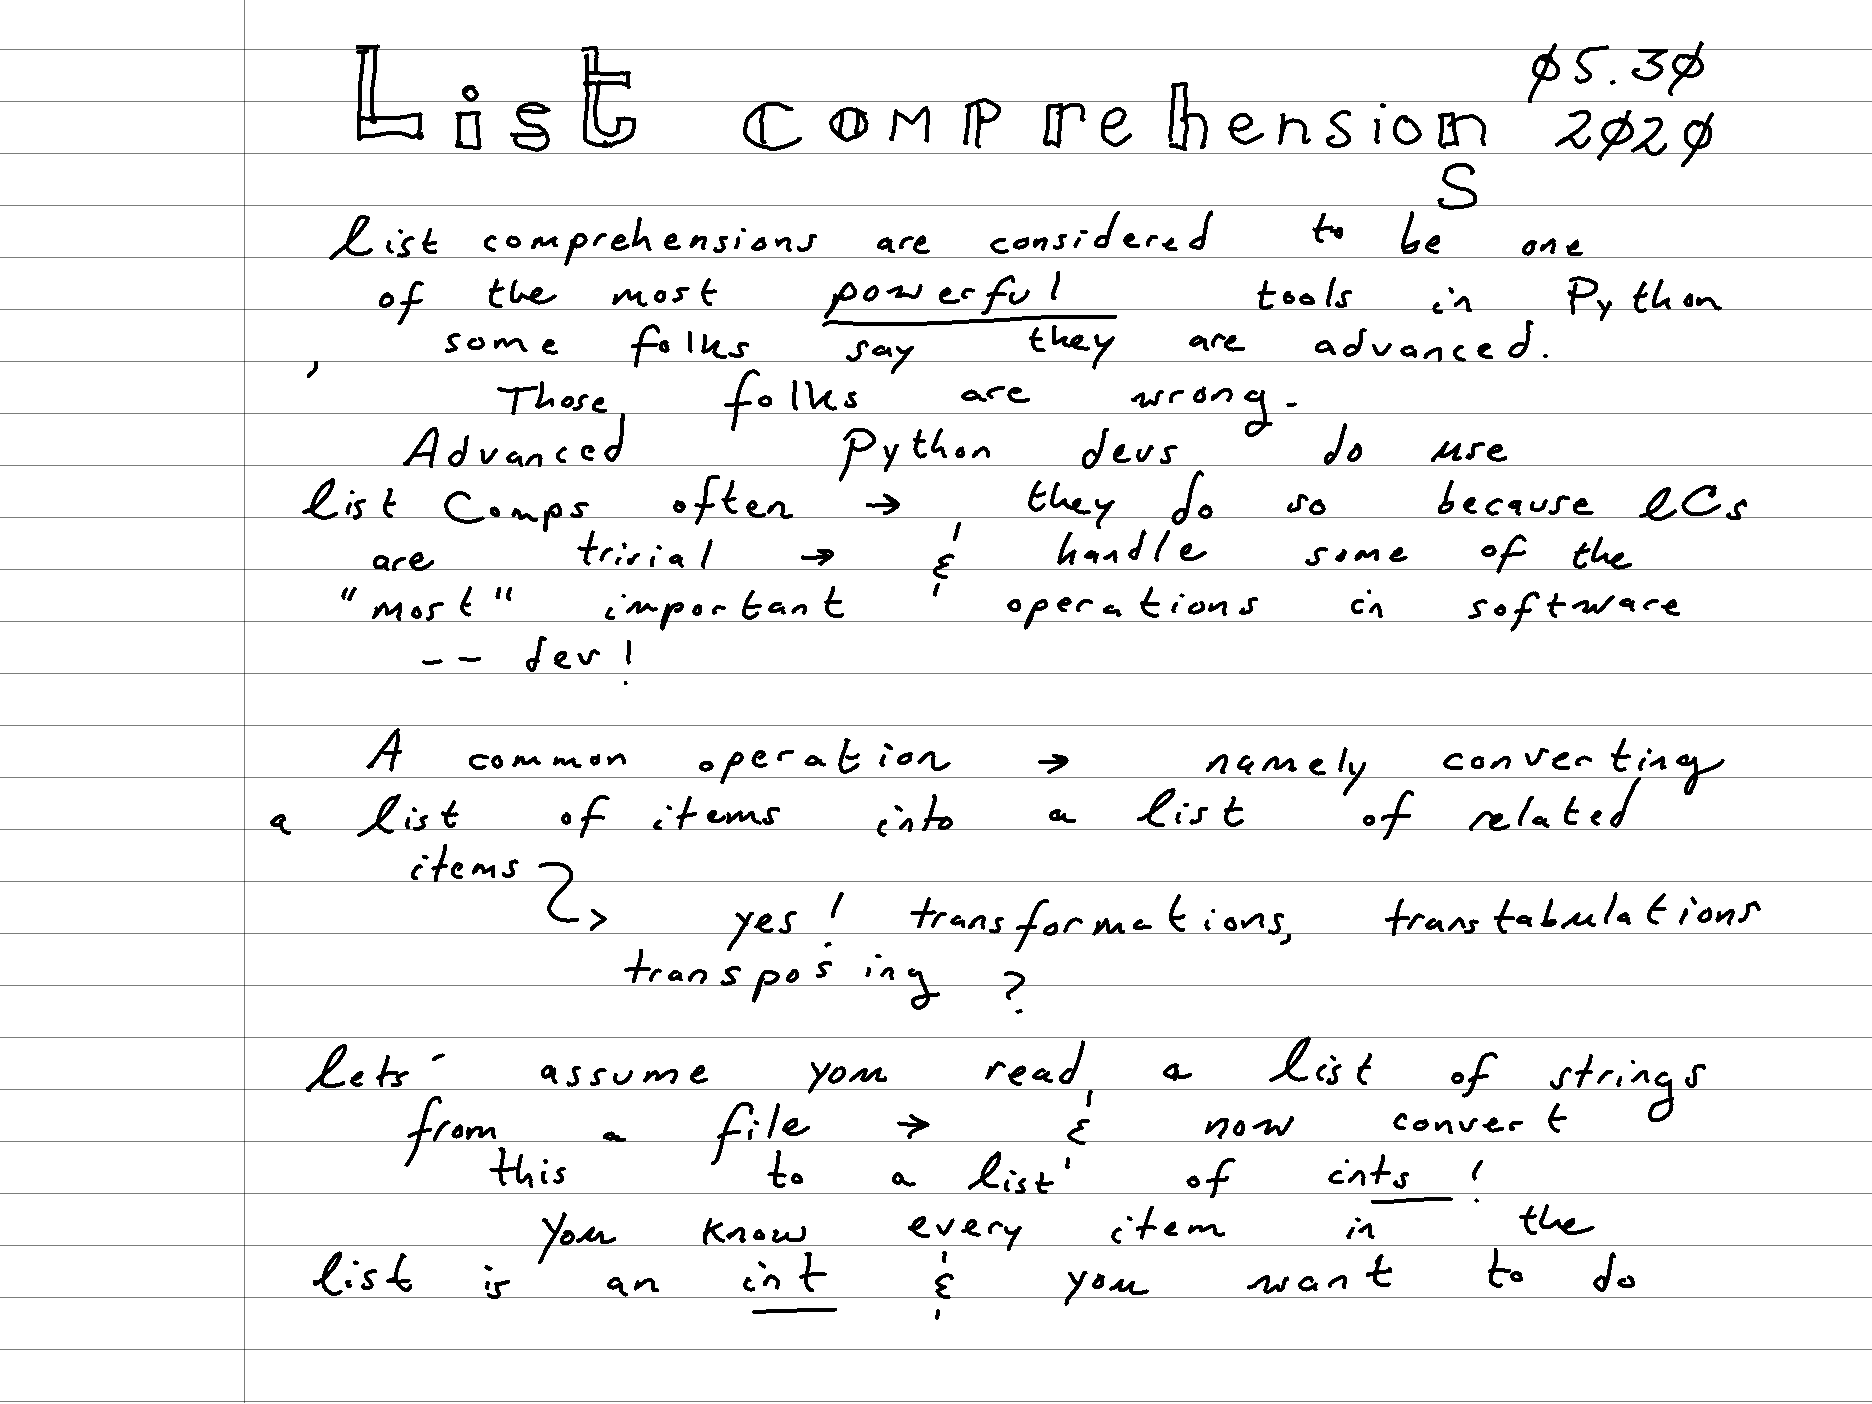 List comprehension 05.30
2020
s
list comprehensions are considered to be one
of the most powerful tools in Python
, some folks say they are advanced.
Those folks are wrong.
Advanced Python devs do use
list Comps often → they do so because LCs
are trivial → & handle some of the
"most" important operations in software
-- dev!
A common operation → namely converting
a list of items into a list of related
items → yes! transformations, transtabulations
transposing ?
lets' assume you read a list of strings
from a file → & now convert
this to a list of ints!
you know every item in the
list is an int & you want to do